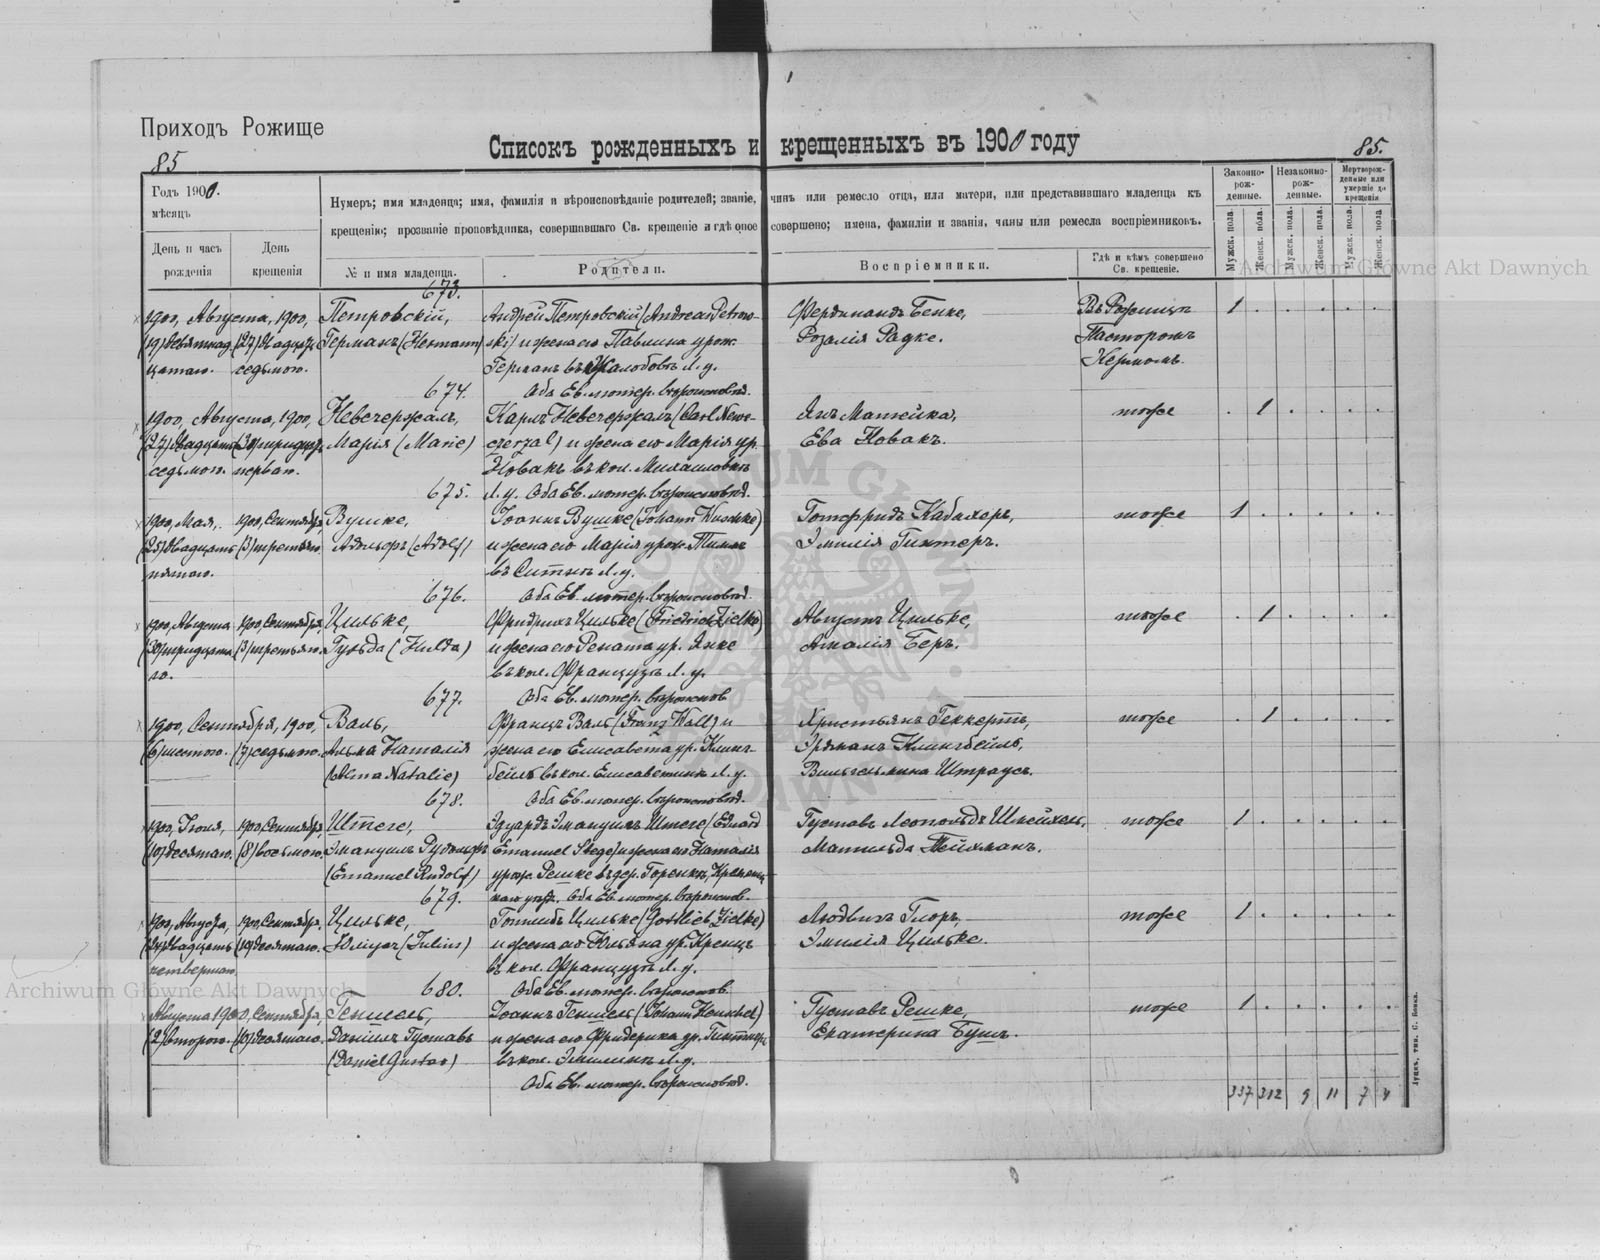 Приходъ Рожище
85
Списокъ рожденныхъ и крещенныхъ въ 1900 году
85.
Годъ 1900.
мѣсяцъ
День и часъ рожденія
День крещенія
Нумеръ; имя младенца; имя, фамилія и вѣроисповѣданіе родителей; званіе, чинъ или ремесло отца, или матери, или представившаго младенца къ
крещенію; прозваніе проповѣдника, совершавшаго Св. крещеніе и гдѣ оное совершено; имена, фамиліи и званія, чины или ремесла воспріемниковъ.
№ и имя младенца.
Родители.
Воспріемники.
Гдѣ и кѣмъ совершено Св. крещеніе.
Законно-рож-денные.
Незаконно-рож-денные.
Мертворож-денные или умершіе до крещенія
Мужск. пола.
Женск. пола.
Мужск. пола.
Женск. пола.
Мужск. пола
Женск. пола
Archiwum Główne Akt Dawnych
673.
1900, Августа, 1900, Петровскій, Андрей Петровскій (Andreas Petrow- Фердинандъ Бенке, Въ Рожищѣ 1
(19) Девятнад (27) Двадцать Германъ (Hermann) ski) и жена его Павлина урож. Розалія Радке. Пасторомъ
цатаго. седьмого. Германъ въ Жалобовкѣ Л. у.
674. Оба Ев. лютер. вѣроисповѣд.
1900, Августа, 1900, Невечержалъ, Карлъ Невечержалъ (Carl Niew- Янъ Матейка, тоже 1
(27) двадцать Марія (Marie) czerzal) и жена его Марія ур. Ева Новакъ.
седьмого. перваго. Новакъ въ кол. Михаиловкѣ
675. Л. у. Оба Ев. лютер. вѣроисповѣд.
1900, Мая, 1900, Сентября, Вушке, Іоаннъ Вушке (Johann Wuschke) Готфридъ тоже 1
(25) двадцать (3) третьяго. Адольфъ (Adolf) и жена его Марія урож. Тимъ Эмилія Гинтеръ.
пятаго. въ Ситникѣ Л. у.
676. Оба Ев. лютер. вѣроисповѣд.
1900, Августа 1900, Сентября, Цильке, Фридрихъ Цильке (Friedrich Zielke) Августъ Цильке, тоже 1
(30) тридцата (3) третьяго. Гульда (Hulda) и жена его Рената ур. Янке Амалія Беръ.
го. въ кол. Французъ Л. у.
677. Оба Ев. лютер. вѣроиспов.
1900, Сентября, 1900, Валь, Францъ Валь (Franz Wall) и Христьянъ Геккертъ, тоже 1
(6) шестого. (7) седьмого. Альма Наталія жена его Елисавета ур. Клинг- Эрдманъ Клингбейль,
(Alma Natalie) бейль въ кол. Елисаветинъ Л. у. Вильгельмина Штраусъ.
678. Оба Ев. лютер. вѣроисповѣд.
1900, Іюля, 1900, Сентября, Штеге, Эдуардъ Эмануилъ Штеге (Eduard Густавъ Леопольдъ тоже 1
(10) десятаго. (8) восьмого. Эмануилъ Рудольфъ Emanuel Stege) и жена его Наталія Матильда Тейхманъ.
(Emanuel Rudolf) урож. Решке въ дер. Горенкѣ, Кременец
679. каго уѣзд. Оба Ев. лютер. вѣроиспов.
1900, Августа, 1900, Сентября, Цильке, Готлибъ Цильке (Gottlieb Zielke) Людвигъ Глоръ, тоже 1
(24) двадцать (10) десятаго. Юліусъ (Julius) и жена его Юльяна ур. Кренцъ Эмилія Цильке.
четвертаго. въ кол. Французъ Л. у.
680. Оба Ев. лютер. вѣроиспов.
Августа 1900, Сентября, Геншель, Іоаннъ Геншель (Johann Henschel) Густавъ Решке, тоже 1
(2) второго. (10) десятаго. Даніилъ Густавъ и жена его Фридерика ур. Гинтеръ Екатерина Бушъ.
(Daniel Gustav) въ кол. Эмилинъ Л. у.
Оба Ев. лютер. вѣроисповѣд.
337 312 9 11 7 4
Луцкъ, тип. С. Бокка.
Archiwum Główne Akt Dawnych
ARCHIWUM GŁÓWNE AKT DAWNYCH